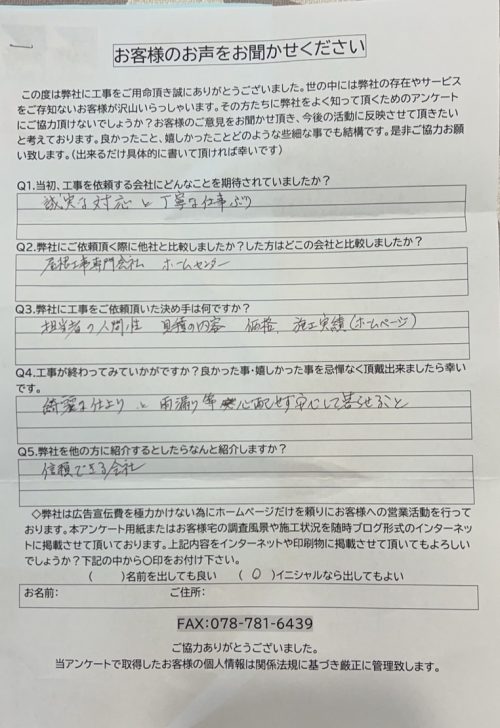 お客様のお声をお聞かせください
この度は弊社に工事をご用命頂き誠にありがとうございました。世の中には弊社の存在やサービス
をご存知ないお客様が沢山いらっしゃいます。その方たちに弊社をよく知って頂くためのアンケート
にご協力頂けないでしょうか？お客様のご意見をお聞かせ頂き、今後の活動に反映させて頂きたい
と考えております。良かったこと、嬉しかったことどのような些細な事でも結構です。是非ご協力お願
い致します。（出来るだけ具体的に書いて頂ければ幸いです）
Q1.当初、工事を依頼する会社にどんなことを期待されていましたか？
誠実な対応と丁寧な仕事ぶり
Q2.弊社にご依頼頂く際に他社と比較しましたか？した方はどこの会社と比較しましたか？
屋根工事専門会社 ホームセンター
Q3.弊社に工事をご依頼頂いた決め手は何ですか？
担当者の人間性 見積の内容 価格、施工実績（ホームページ）
Q4.工事が終わってみていかがですか？良かった事・嬉しかった事を忌憚なく頂戴出来ましたら幸い
です。
綺麗な仕上りと雨漏り等心配せず安心して暮らせること
Q5.弊社を他の方に紹介するとしたらなんと紹介しますか？
信頼できる会社
◇弊社は広告宣伝費を極力かけない為にホームページだけを頼りにお客様への営業活動を行って
おります。本アンケート用紙またはお客様宅の調査風景や施工状況を随時ブログ形式のインターネッ
トに掲載させて頂いております。上記内容をインターネットや印刷物に掲載させて頂いてもよろしい
でしょうか？下記の中から〇印をお付け下さい。
（　　）名前を出しても良い　（ ○ ）イニシャルなら出してもよい
お名前：　ご住所：
FAX：078-781-6439
ご協力ありがとうございました。
当アンケートで取得したお客様の個人情報は関係法規に基づき厳正に管理致します。